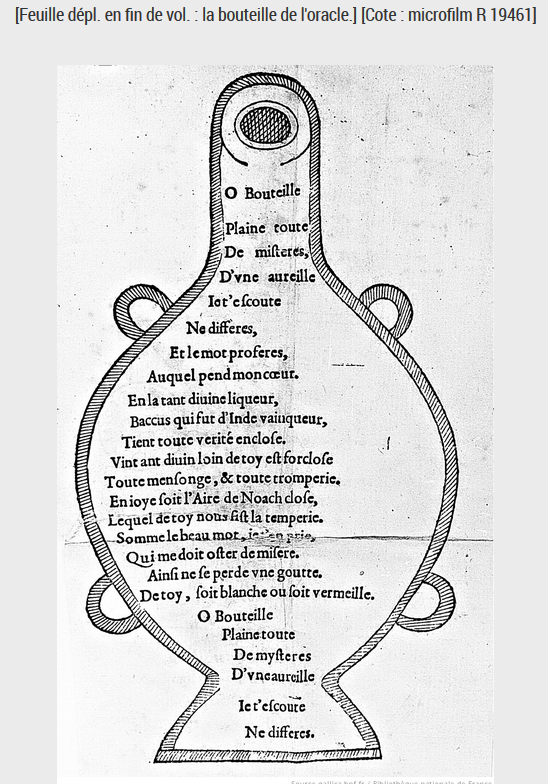 [Feuille dépl. en fin de vol. : la bouteille de l'oracle.] [Cote : microfilm R 19461]
O Bouteille
Plaine toute
De miſteres,
D'vne aureille
Ie t'eſcoute
Ne differes,
Et le mot proferes,
Auquel pend mon cœur.
En la tant diuine liqueur,
Baccus qui fut d'Inde vainqueur,
Tient toute verité encloſe.
Vint ant diuin loin de toy eſt forcloſe
Toute menſonge, & toute tromperie.
En ioye ſoit l'Aire de Noach cloſe,
Lequel de toy nous fiſt la temperie.
Somme le beau mot, ie t'en prie,
Qui me doit oſter de miſere.
Ainſi ne ſe perde vne goutte.
De toy, ſoit blanche ou ſoit vermeille.
O Bouteille
Plaine toute
De myſteres
D'vne aureille
Ie t'eſcoute
Ne differes.
Source gallica.bnf.fr / Bibliothèque nationale de France